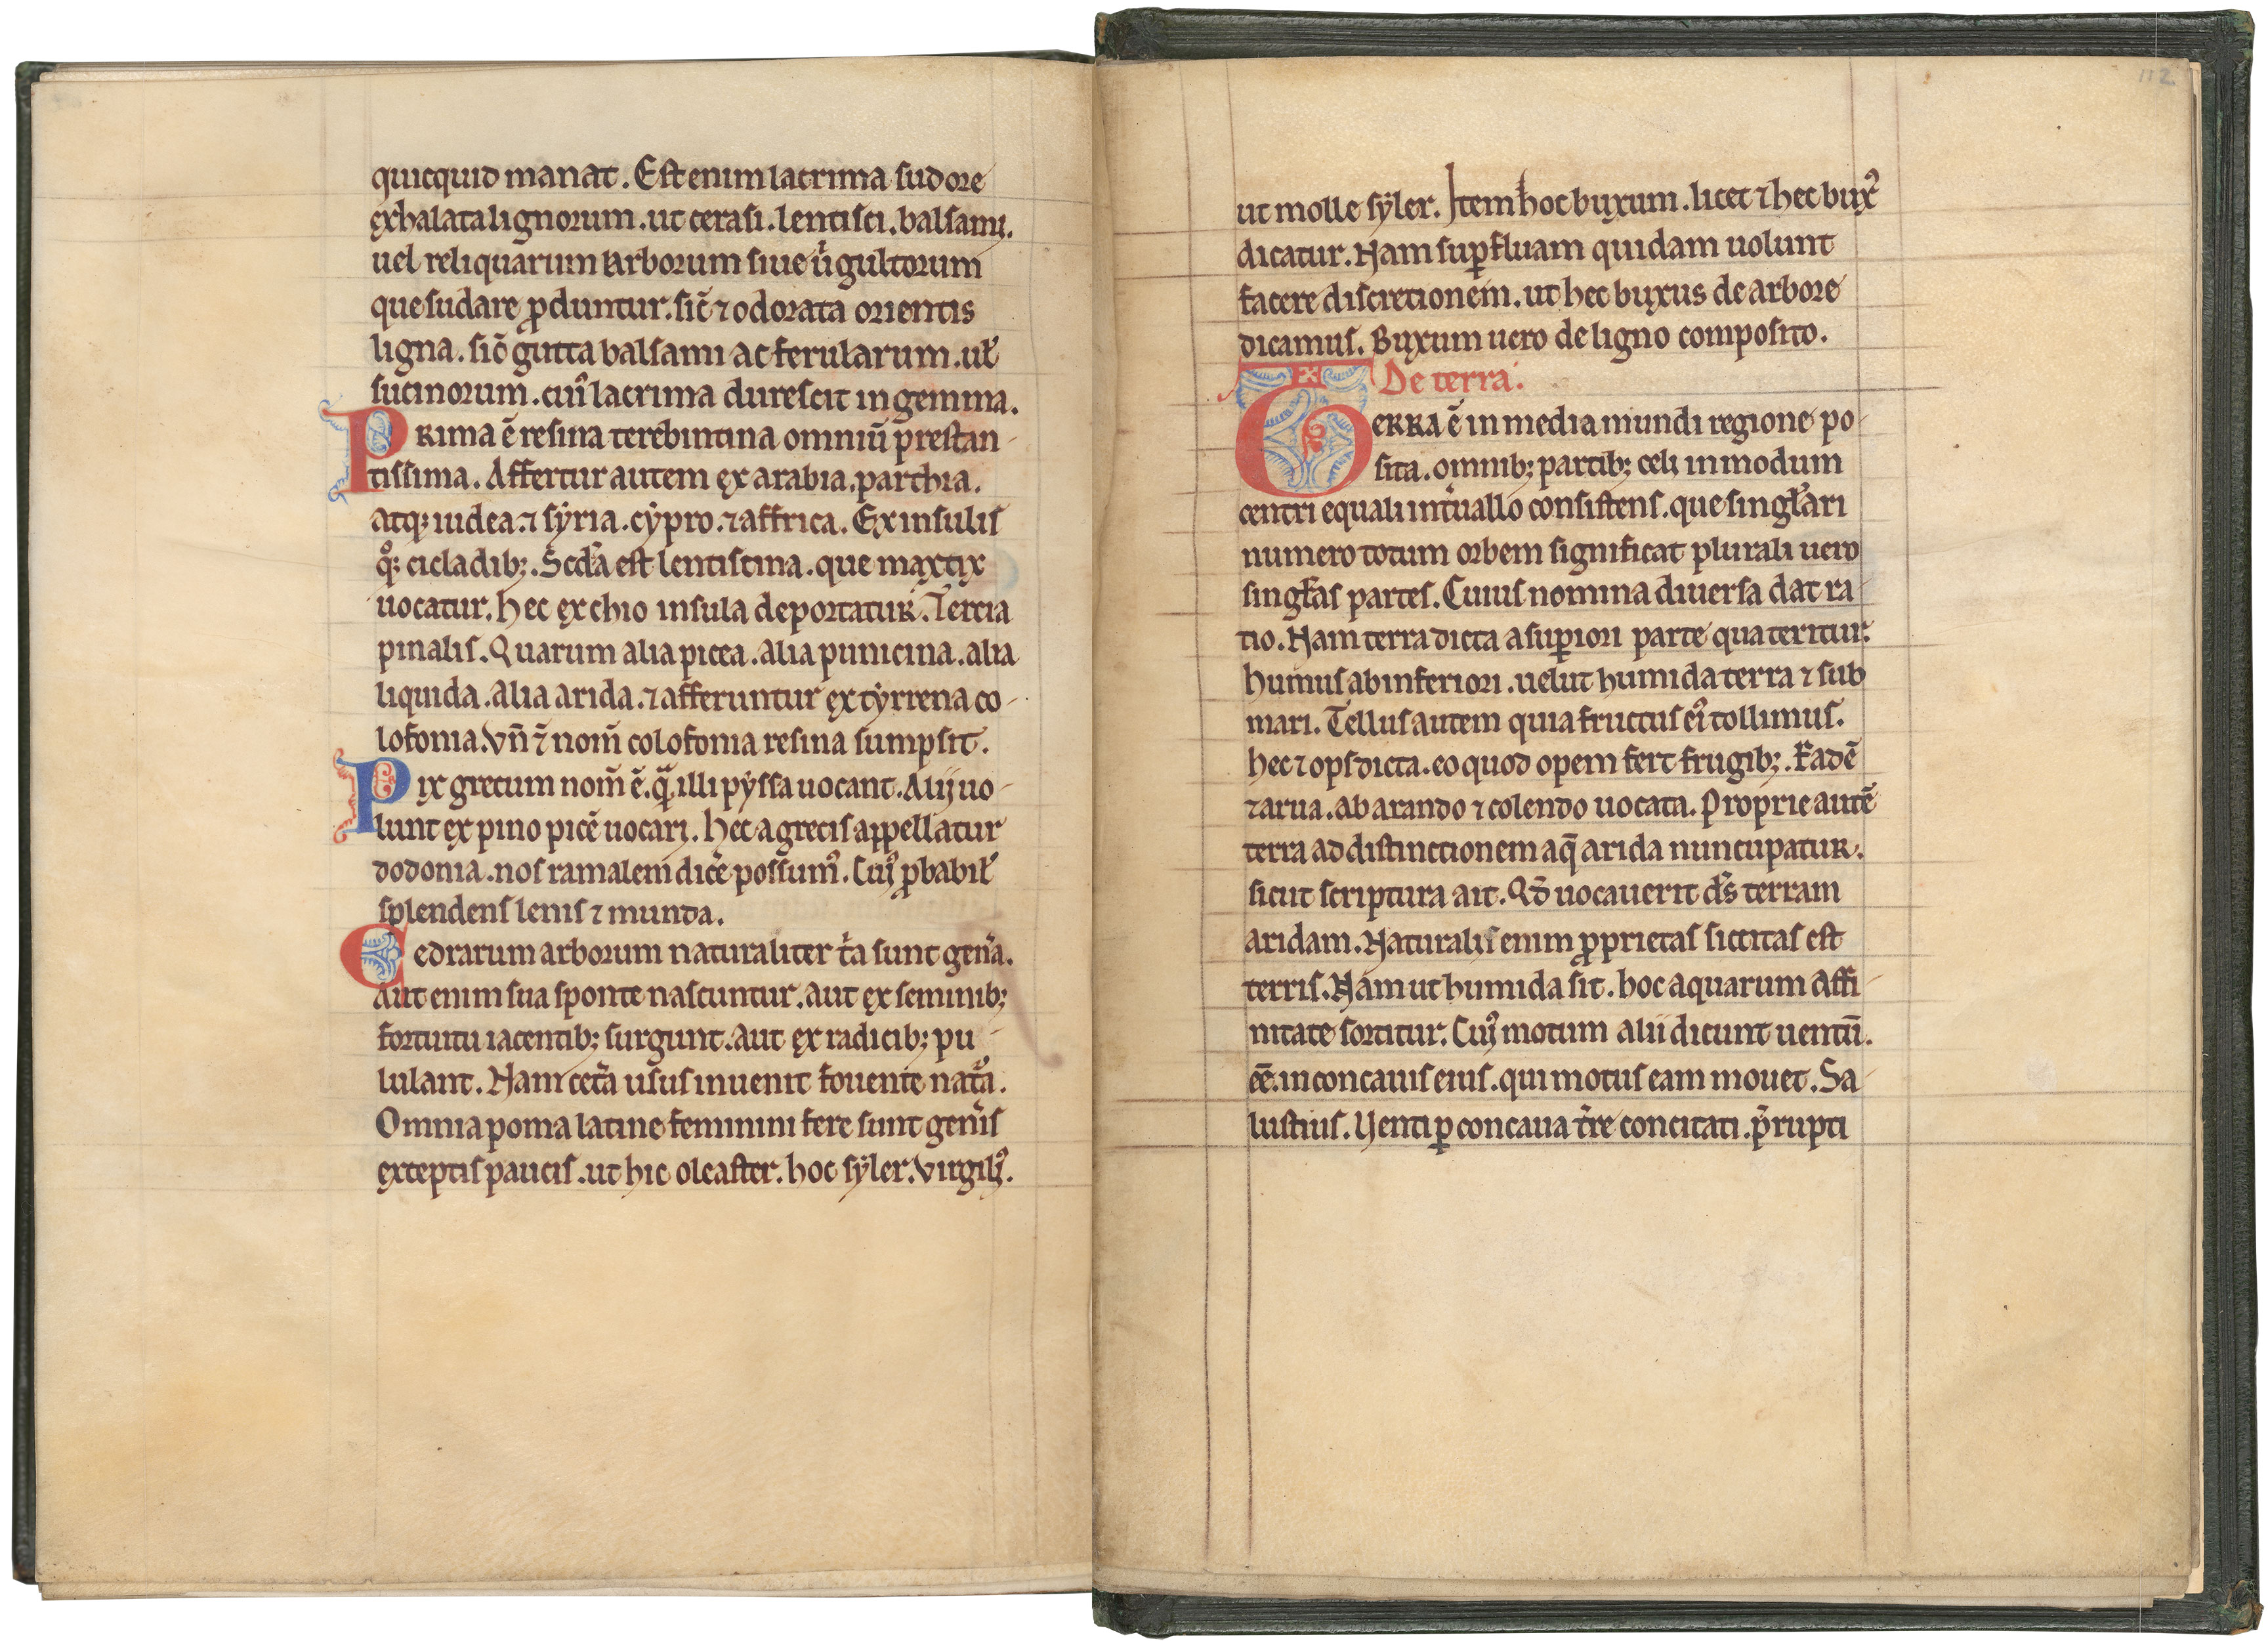 quicquid manat. Est enim lacrima sudore
exhalata lignorum. ut cerasi. lentisci. balsami.
uel reliquarum arborum siue uͥgultorum
que sudare ꝓduntur. sic̄ ⁊ odorata orientis
ligna. sic̄ gutta balsami ac ferularum. uł
sucinorum. cuiꝰ lacrima durescit in gemma.
PRima ē resina terebintina omniū prestan-
tissima. Affertur autem ex arabia. parthia.
atqꝫ iudea. ⁊ syria. cypro. ⁊ affrica. Ex insulis
qͦꝫ cicladibꝫ. Scd̄a est lentiscina. que maxtix
uocatur. hec ex chio insula deportatur. Tercia
pinalis. Quarum alia picea. alia punicina. alia
liquida. alia arida. ⁊ afferuntur ex tyrrena co-
lofonia. Vn̄ ⁊̄ nom̄ colofonia resina sumpsit.
Pix grecum nom̄ ē. qͣ illi pyssa uocant. Alij uo-
lunt ex pino picē uocari. hec a grecis appellatur
dodonia. nos ramalem dic̄e possumꝰ. Cuiꝰ ꝓbabił
splendens lenis ⁊ munda.
Cedrarum arborum naturaliter tͥa sunt gen̄a.
Aut enim sua sponte nascuntur. aut ex seminibꝫ
fortuitu iacentibꝫ surgunt. aut ex radicibꝫ pu-
lulant. Nam cet̄a usus inuenit fouente nat̄a.
Omnia poma latine feminini fere sunt gen̄is
exceptis paucis. ut hic oleaster. hoc syler. Virgiliꝰ.
112
ut molle syler. Item hoc buxum. licet ⁊ hec buxꝰ
dicatur. Nam suꝑfluam quidam uolunt
facere discretionem. ut hec buxus de arbore
dicamus. Buxum uero de ligno composito.
De terra.
TERRA ē in media mundi regione po-
sita. omnibꝫ partibꝫ celi in modum
centri equali int̄uallo consistens. que singłari
numero totum orbem significat plurali uero
singłas partes. Cuius nomina diuersa dat ra-
tio. Nam terra dicta a suꝑiori parte qua teritur.
humus ab inferiori. uelut humida terra ⁊ sub
mari. Tellus autem quia fructus eiꝰ tollimus.
hec ⁊ ops dicta. eo quod opem fert frugibꝫ. Eadē
⁊ arua. ab arando ⁊ colendo uocata. Proprie autē
terra ad distinctionem aq̄ arida nuncupatur.
sicut scriptura ait. Qd̄ uocauerit ds̄ terram
aridam. Naturalis enim ꝓprietas siccitas est
terris. Nam ut humida sit. hoc aquarum affi-
nitate sortitur. Cuiꝰ motum alii dicunt uentū.
eē. in concauis eius. qui motus eam mouet. Sa-
lustius. Venti ꝑ concaua tr̄re concitati. p̄rupti